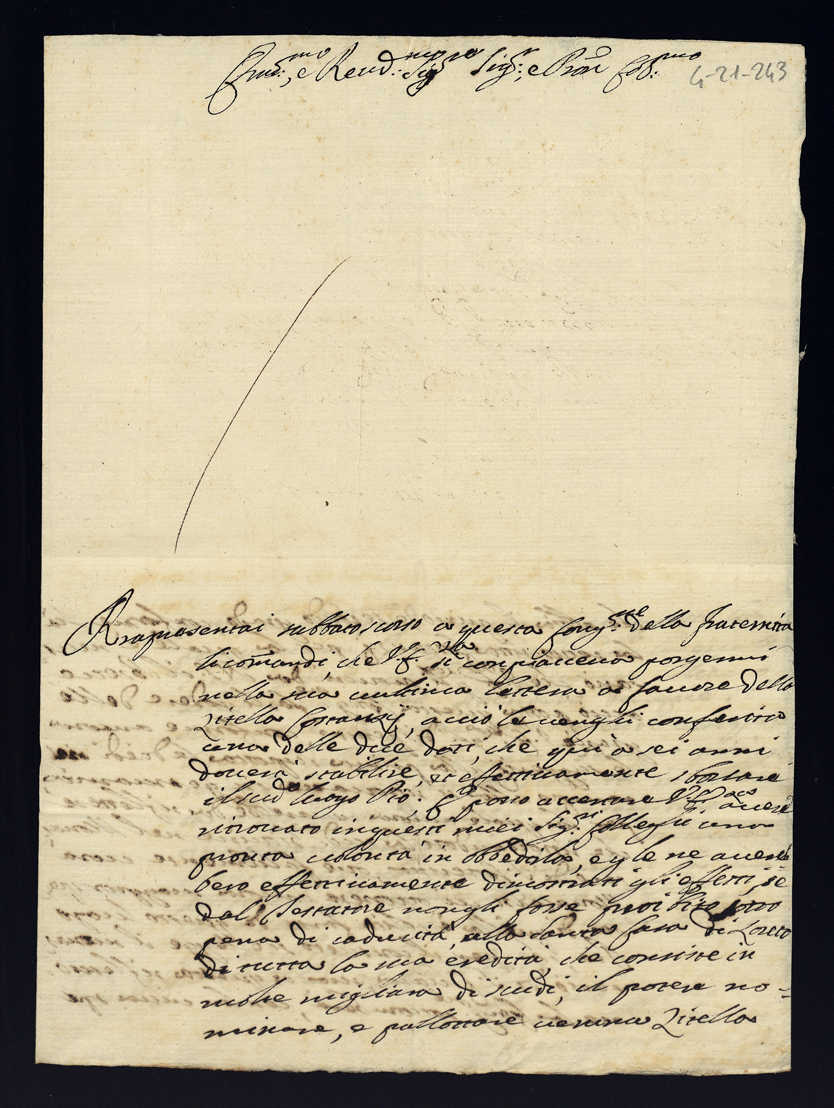 Em:mo, e Rend:mo Sig:r Sig:r, e Pron Col:mo
4-21-243
Rrapresentai sabbato scorso a questa Cong:ne della fraternita
li comandi, che V. E. si compiaceva porgermi
nella sua ultima lettera a favore della
Zitella Costanzij, acciò le venghi conferita
una delle due doti, che qui a sei anni
doverà stabilire, et effettivamente sborsare
il sud:o luogo Pio; E posso accertare V. E. avere
ritrovato in questi miei Sig:ri Colleghi una
pronta volontà in obbedirla, e gle ne averebbero
effettivamente dimostrati gli effetti, se
dal Testatore non gli fosse proibito sotto
pena di caducità, alla Santa Casa di Loreto
di tutta la sua eredità, che consiste in
molte migliara di scudi, il potere no=
minare, e pallottare veruna Zitella